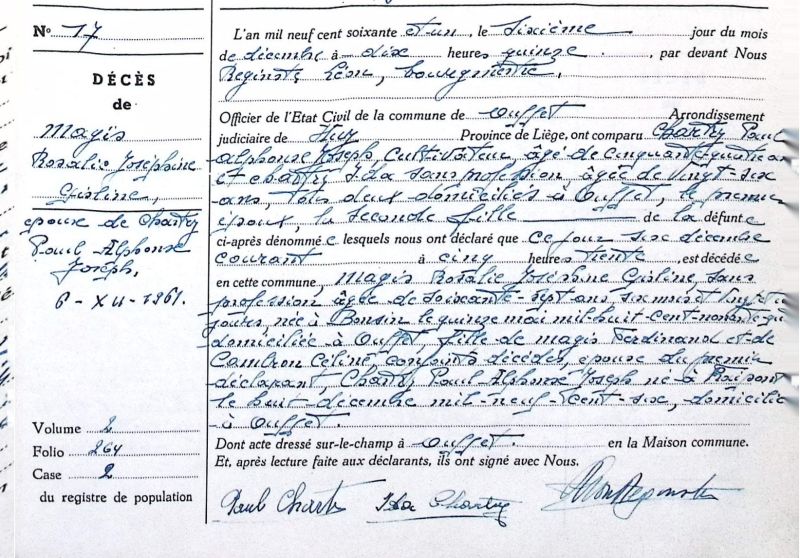 N° 17
DÉCÈS
de
Magis
Rosalie Joséphine
Gisline,
épouse de Chartry
Paul Alphonse
Joseph,
6 - XII - 1961.
Volume 2
Folio 264
Case 2
du registre de population
L'an mil neuf cent soixante et-un, le sixième jour du mois
de décembre à dix heures quinze, par devant Nous
Léon, bourgmestre,
Officier de l'Etat Civil de la commune de Ouffet Arrondissement
judiciaire de Huy Province de Liège, ont comparu Chartry Paul
Alphonse Joseph, cultivateur, âgé de cinquante-quatre ans
et Chartry Ida sans profession, âgée de vingt-six
ans, tous deux domiciliés à Ouffet, le premier
époux, la seconde fille de la défunte
ci-après dénommée lesquels nous ont déclaré que ce jour six décembre
courant à cinq heures trente, est décédée
en cette commune, Magis Rosalie Joséphine Gisline, sans
profession âgée de soixante-sept ans, six mois et vingt et un
jours, née à Bonsin le quinze mai mil-huit-cent-nonante-
domiciliée à Ouffet, fille de Magis Ferdinand et de
Céline, conjoints décédés, épouse du premier
déclarant, Chartry Paul-Alphonse Joseph né à
le huit décembre mil-neuf-cent-six, domicilié
à Ouffet.
Dont acte dressé sur-le-champ à Ouffet en la Maison commune.
Et, après lecture faite aux déclarants, ils ont signé avec Nous.
Paul Chartry Ida Chartry